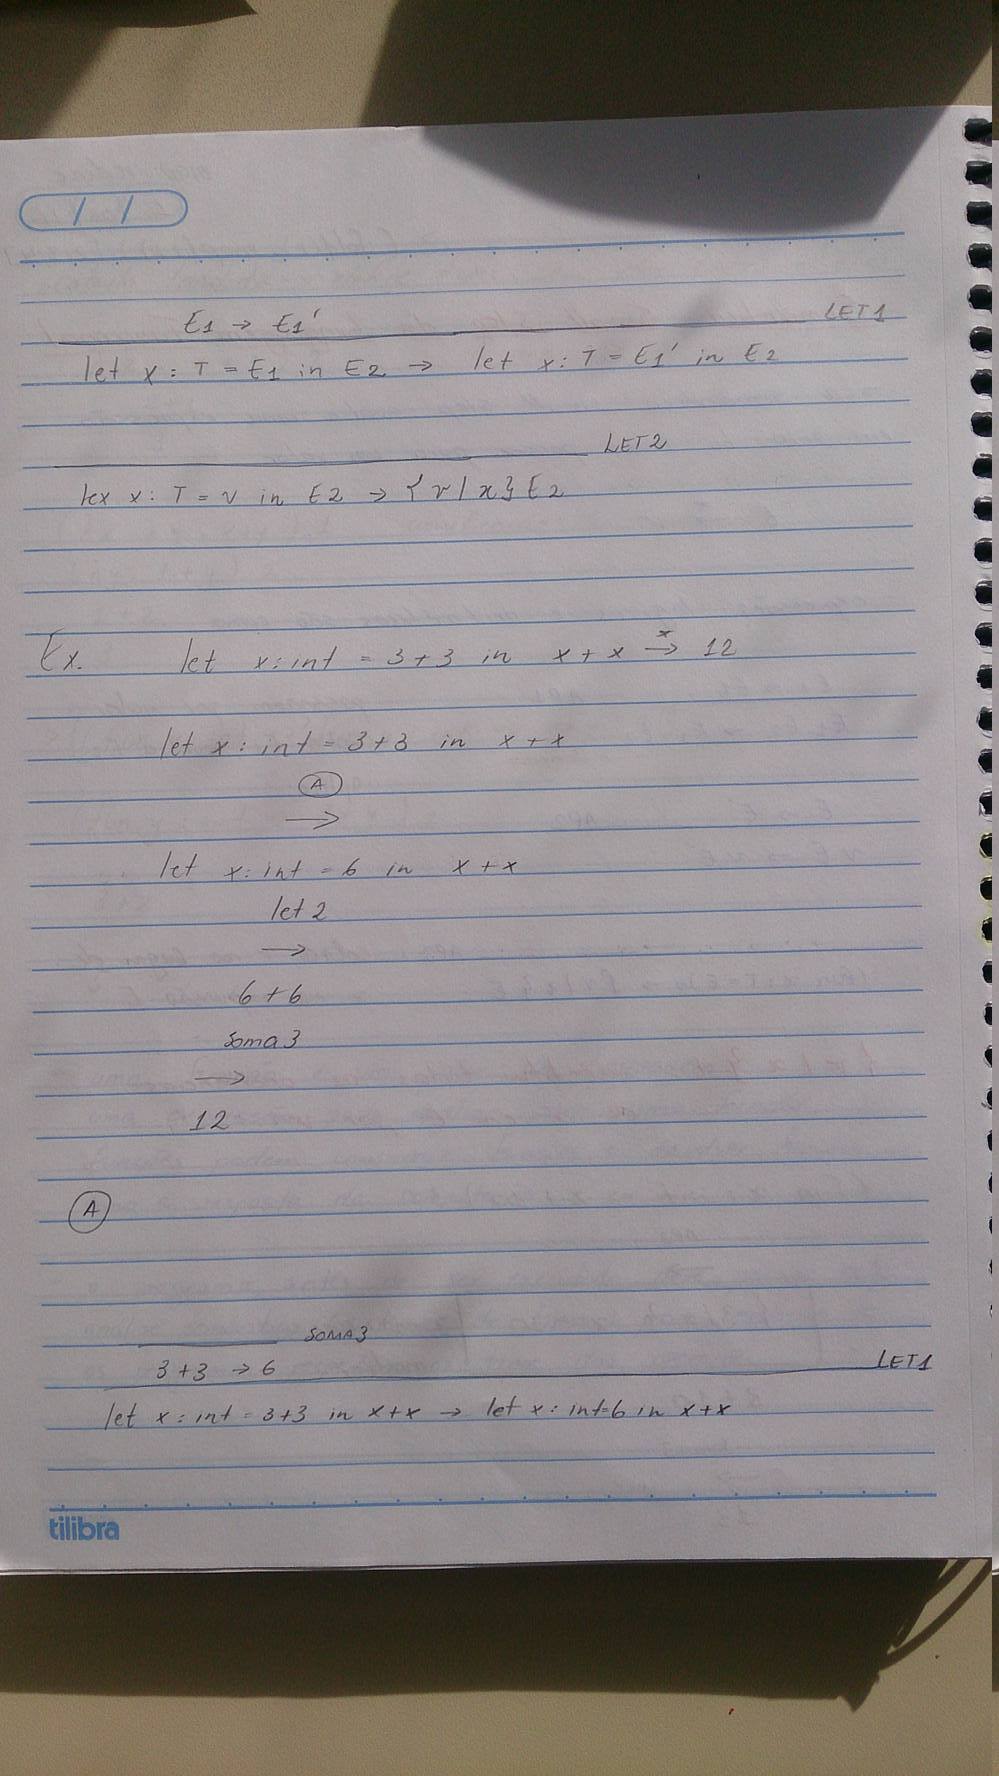 E1 → E1' LET1
let x : T = E1 in E2 → let x : T = E1' in E2
LET2
lex x : T = v in E2 → {v / x} E2
Ex. let x : int = 3 + 3 in x + x →* 12
let x : int = 3 + 3 in x + x
A
→
let x : int = 6 in x + x
let 2
→
6 + 6
soma 3
→
12
A
SOMA3
3 + 3 → 6 LET1
let x : int = 3+3 in x+x → let x : int=6 in x+x
tilibra